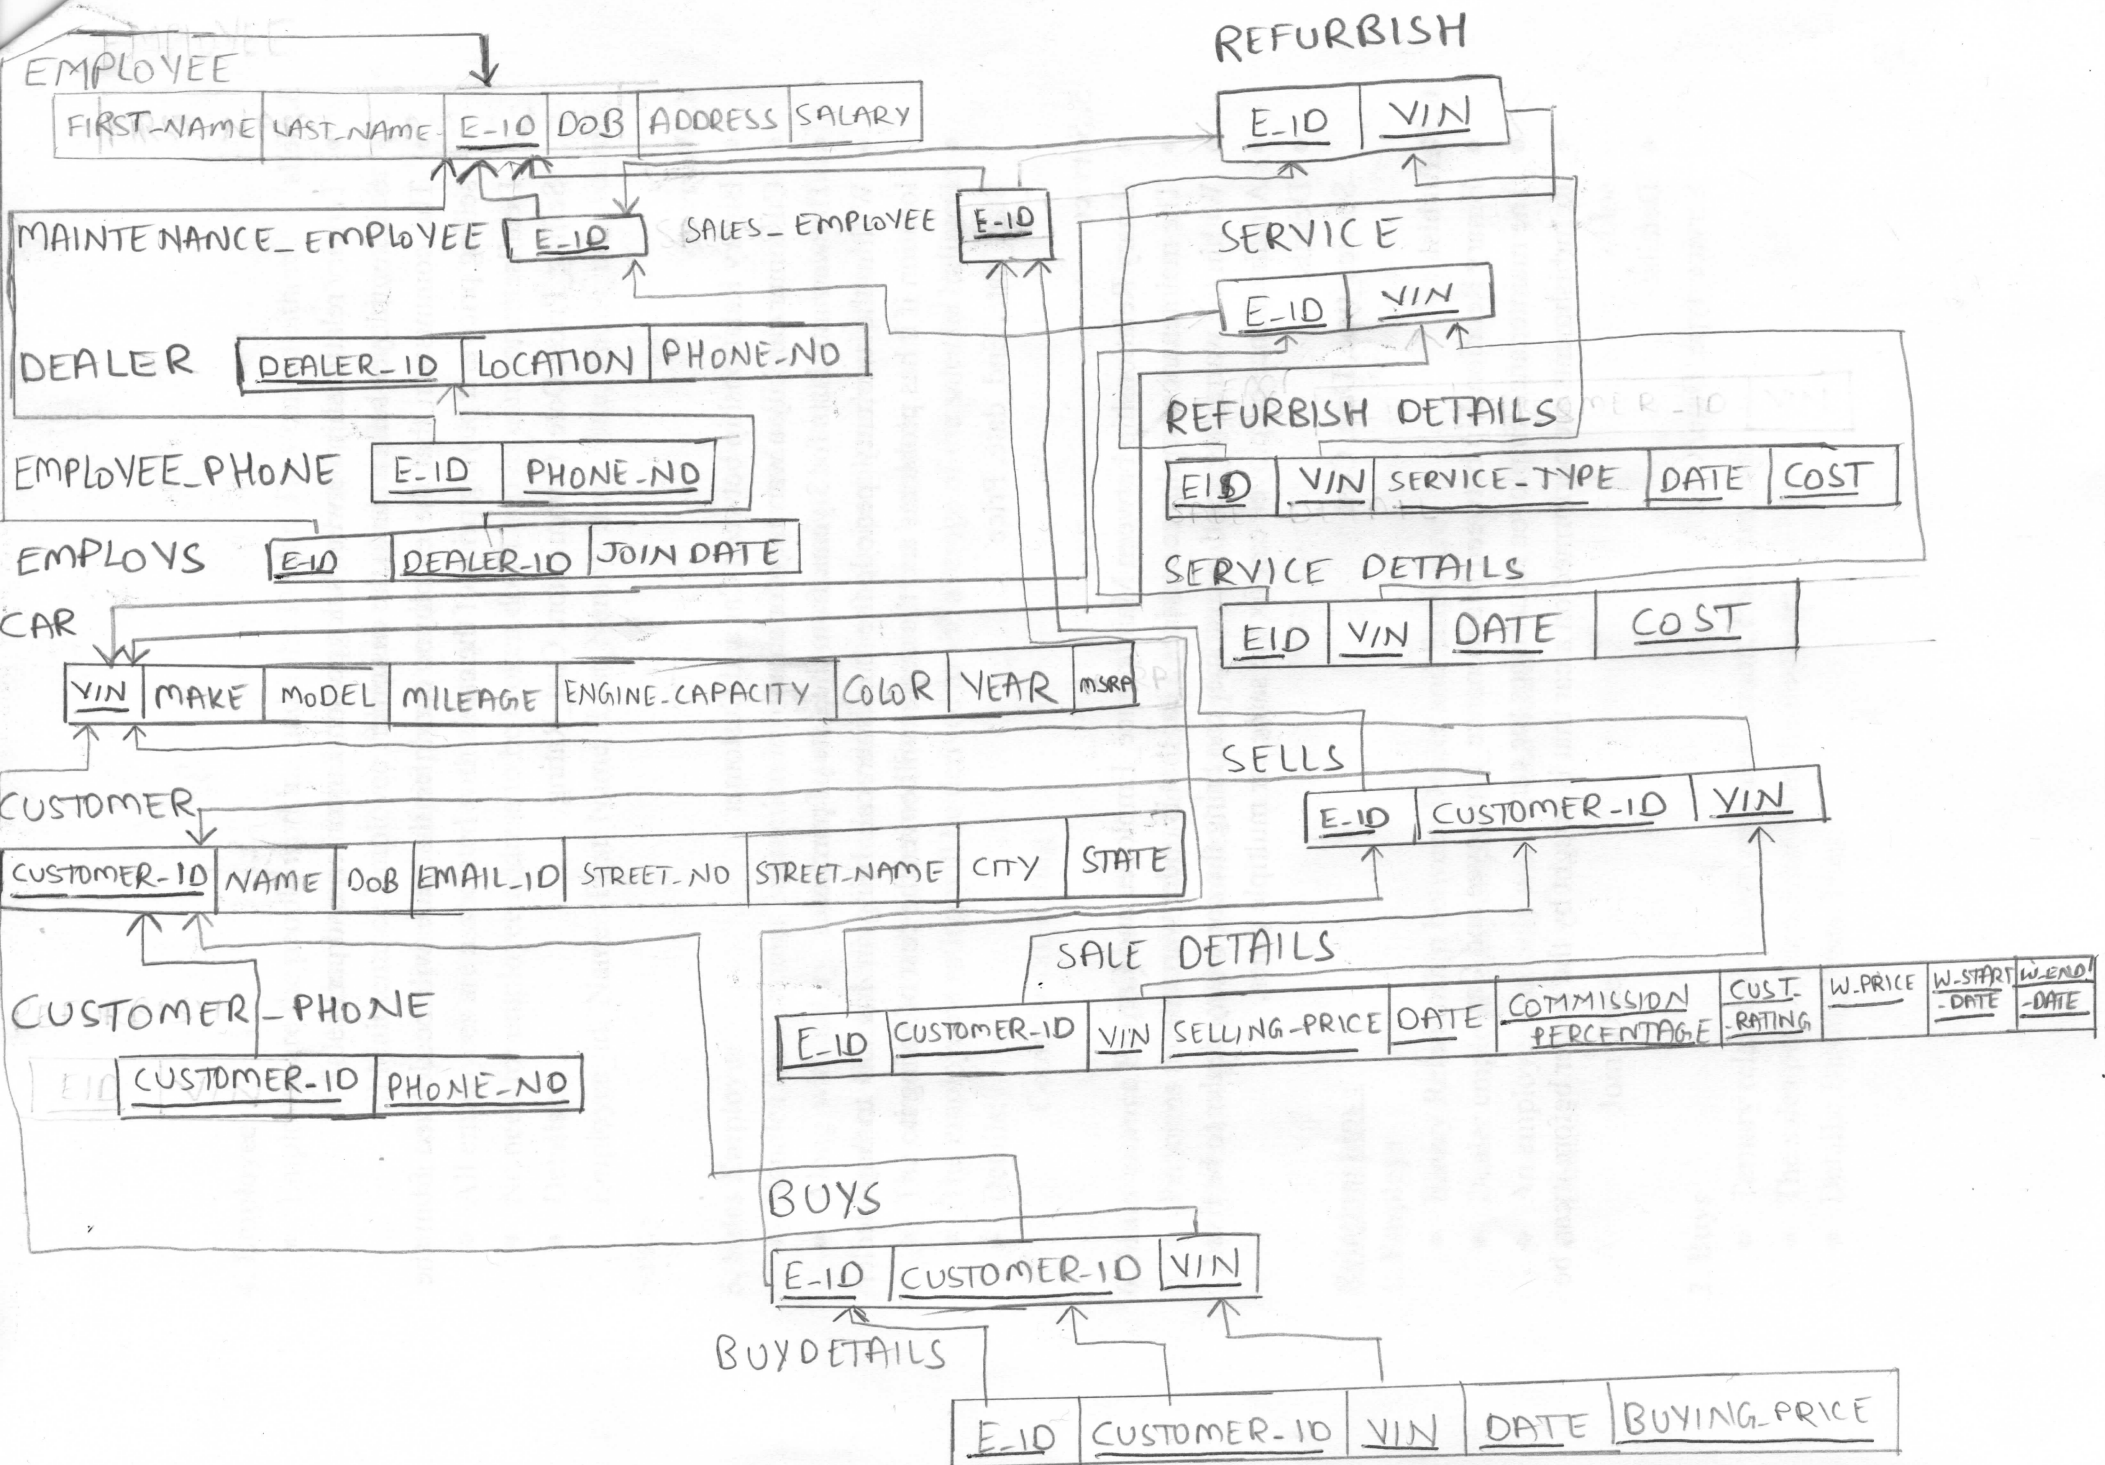 EMPLOYEE
FIRST_NAME LAST_NAME E_ID DOB ADDRESS SALARY
MAINTENANCE_EMPLOYEE E_ID
SALES_EMPLOYEE E_ID
DEALER DEALER_ID LOCATION PHONE_NO
EMPLOYEE_PHONE E_ID PHONE_NO
EMPLOYS E_ID DEALER_ID JOIN DATE
CAR
VIN MAKE MODEL MILEAGE ENGINE_CAPACITY COLOR YEAR MSRP
CUSTOMER
CUSTOMER_ID NAME DOB EMAIL_ID STREET_NO STREET_NAME CITY STATE
CUSTOMER_PHONE
CUSTOMER_ID PHONE_NO
REFURBISH
E_ID VIN
SERVICE
E_ID VIN
REFURBISH DETAILS
EID VIN SERVICE_TYPE DATE COST
SERVICE DETAILS
EID VIN DATE COST
SELLS
E_ID CUSTOMER_ID VIN
SALE DETAILS
E_ID CUSTOMER_ID VIN SELLING_PRICE DATE COMMISSION PERCENTAGE CUST_RATING W_PRICE W_START_DATE W_END_DATE
BUYS
E_ID CUSTOMER_ID VIN
BUYDETAILS
E_ID CUSTOMER_ID VIN DATE BUYING_PRICE